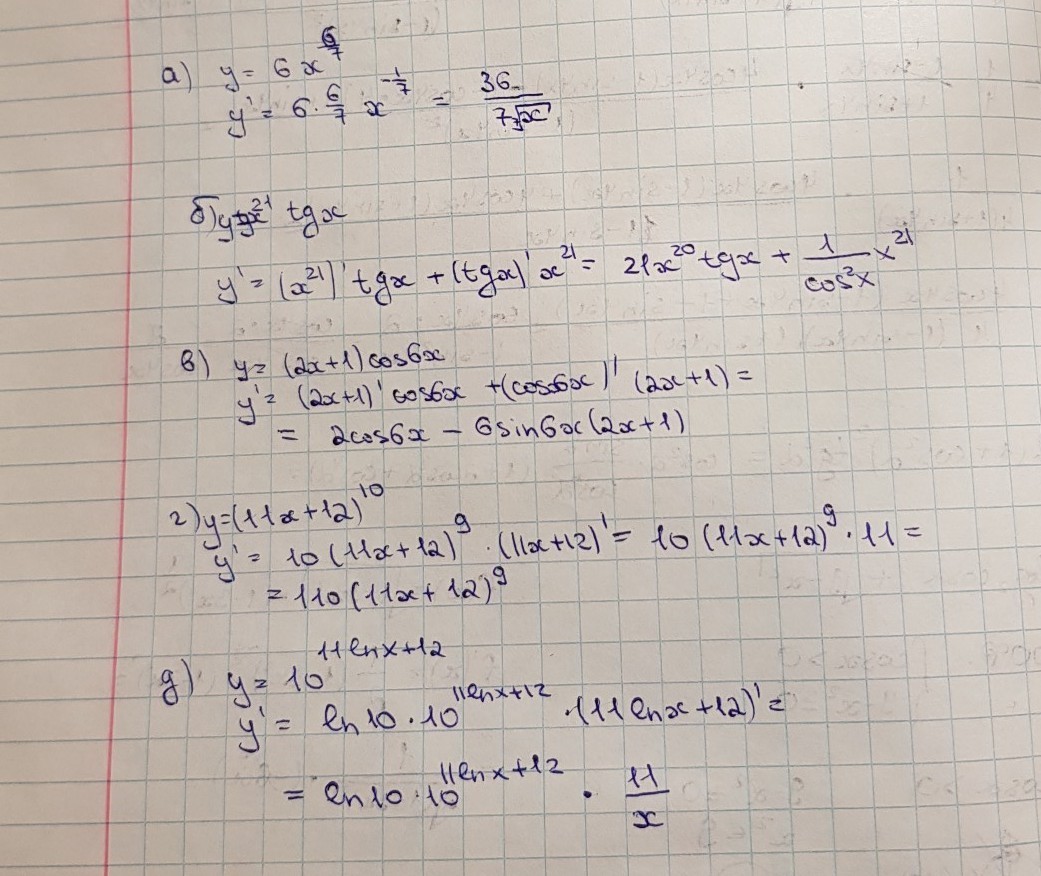 а) y = 6x^{6/7}
y' = 6 · 6/7 x^{-1/7} = 36/(7\sqrt[7]{x})
б) y = x^{21} tgx
y' = (x^{21})' tgx + (tgx)' x^{21} = 21x^{20} tgx + 1/cos²x x^{21}
в) y = (2x+1) cos6x
y' = (2x+1)' cos6x + (cos6x)' (2x+1) =
= 2cos6x - 6sin6x(2x+1)
г) y = (11x+12)^{10}
y' = 10 (11x+12)^{9} · (11x+12)' = 10 (11x+12)^{9} · 11 =
= 110 (11x+12)^{9}
д) y = 10^{11lnx+12}
y' = ln10 · 10^{11lnx+12} · (11lnx+12)' =
= ln10 · 10^{11lnx+12} · 11/x